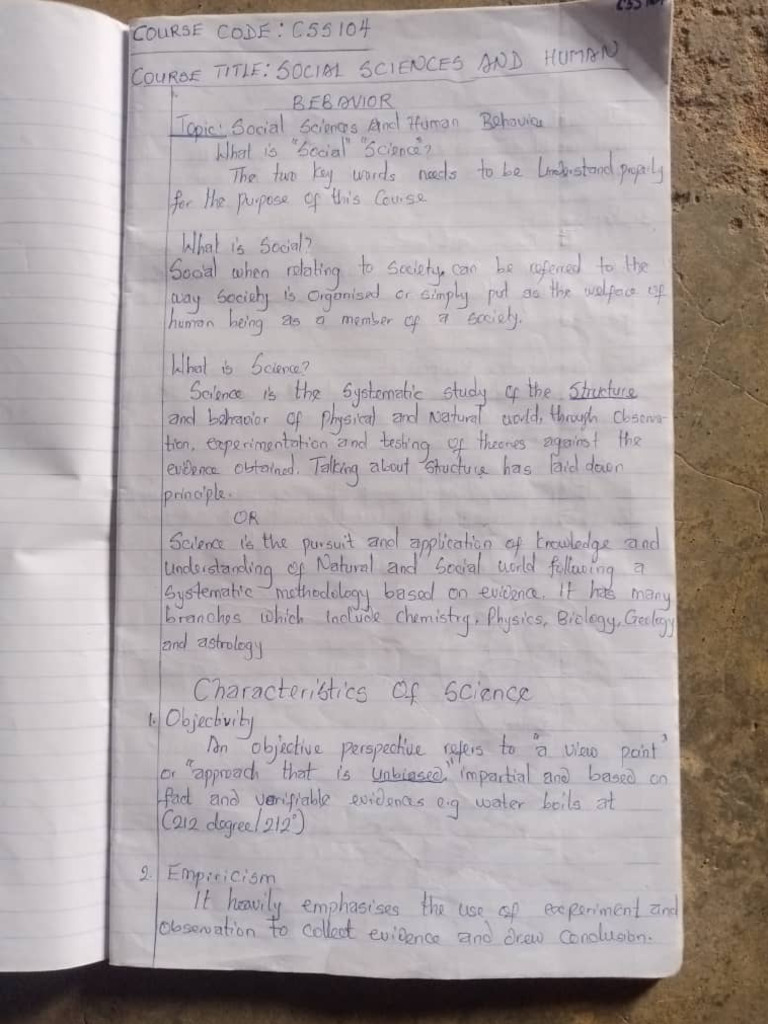 CSS104
COURSE CODE: CSS104
COURSE TITLE: SOCIAL SCIENCES AND HUMAN
BEBAVIOR
Topic: Social Sciences And Human Behavior
What is "Social" "Science"?
The two key words needs to be Understand properly
for the purpose of this Course
What is Social?
Social when relating to Society, can be referred to the
way Society is Organised or simply put as the welfare of
human being as a member of a society.
What is Science?
Science is the Systematic study of the Structure
and behavior of Physical and Natural world, through Observa-
tion, experimentation and testing of theories against the
evidence obtained. Talking about Structure has laid down
principle.
OR
Science is the pursuit and application of knowledge and
Understanding of Natural and Social world following a
Systematic methodology based on evidence. It has many
branches which include Chemistry, Physics, Biology, Geology
and astrology
Characteristics Of Science
1. Objectivity
An objective perspective refers to "a view point"
or "approach that is unbiased," impartial and based on
fact and verifiable evidences e.g water boils at
(212 degree/212°)
2. Empiricism
It heavily emphasises the use of experiment and
Observation to collect evidence and drew Conclusion.